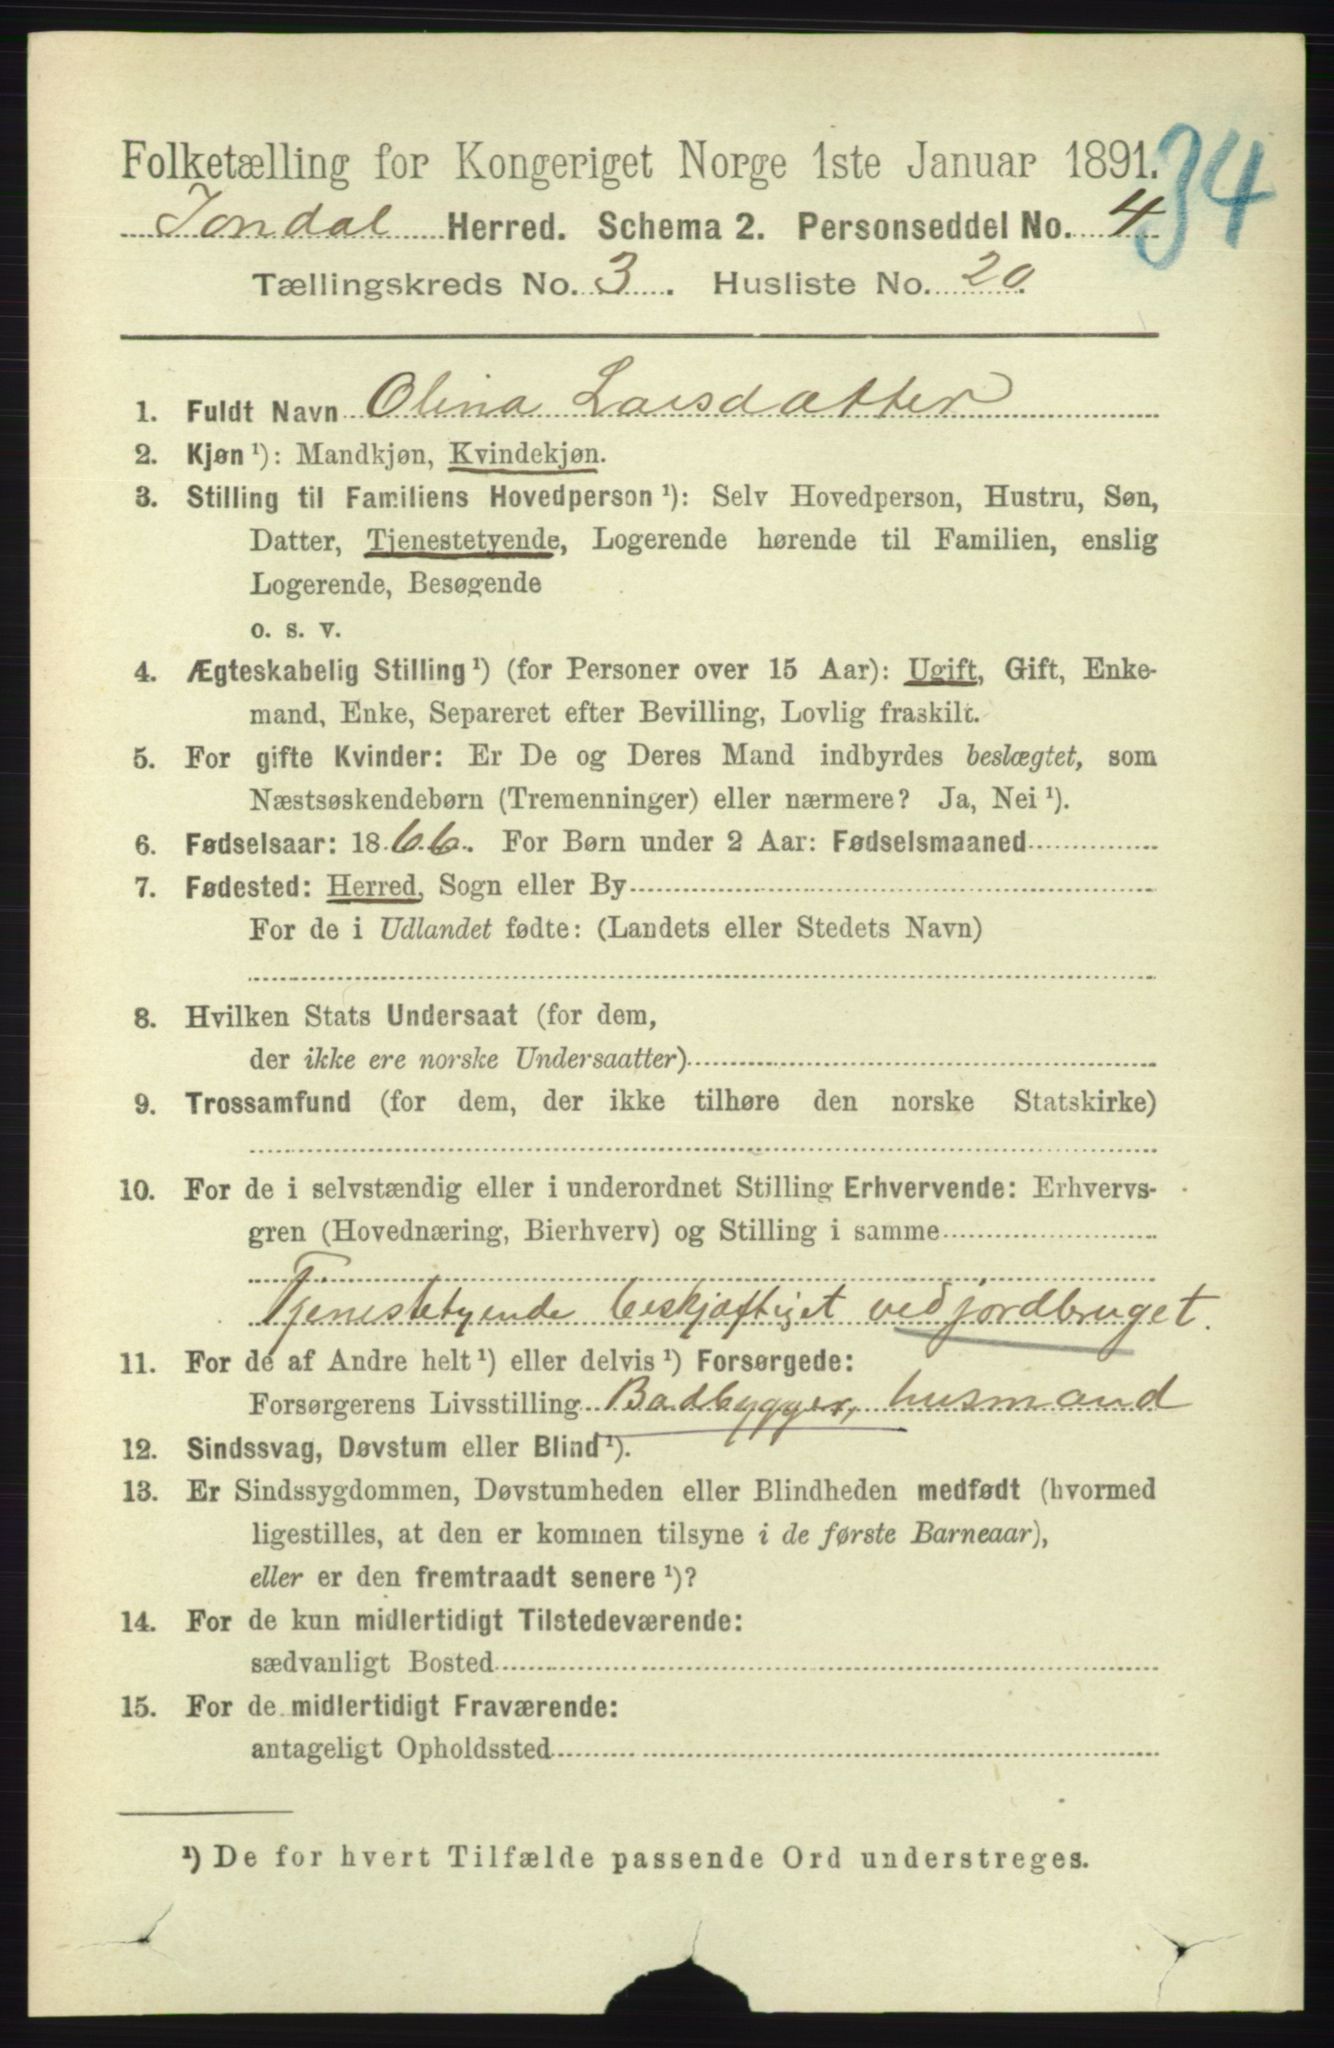 Folketælling for Kongeriget Norge 1ste Januar 1891.
34
Jondal Herred. Schema 2. Personseddel No. 4
Tællingskreds No. 3. Husliste No. 20.
1. Fuldt Navn Olina Larsdatter
2. Kjøn ¹): Mandkjøn, Kvindekjøn.
3. Stilling til Familiens Hovedperson ¹): Selv Hovedperson, Hustru, Søn,
Datter, Tjenestetyende, Logerende hørende til Familien, enslig
Logerende, Besøgende
o. s. v.
4. Ægteskabelig Stilling ¹) (for Personer over 15 Aar): Ugift, Gift, Enke-
mand, Enke, Separeret efter Bevilling, Lovlig fraskilt.
5. For gifte Kvinder: Er De og Deres Mand indbyrdes beslægtet, som
Næstsøskendebørn (Tremenninger) eller nærmere? Ja, Nei ¹).
6. Fødselsaar: 1866. For Børn under 2 Aar: Fødselsmaaned
7. Fødested: Herred, Sogn eller By
For de i Udlandet fødte: (Landets eller Stedets Navn)
8. Hvilken Stats Undersaat (for dem,
der ikke ere norske Undersaatter)
9. Trossamfund (for dem, der ikke tilhøre den norske Statskirke)
10. For de i selvstændig eller i underordnet Stilling Erhvervende: Erhvervs-
gren (Hovednæring, Bierhverv) og Stilling i samme
Tjenestetyende beskjæftiget ved jordbruget.
11. For de af Andre helt ¹) eller delvis ¹) Forsørgede:
Forsørgerens Livsstilling Badbygger, husmand
12. Sindssvag, Døvstum eller Blind ¹).
13. Er Sindssygdommen, Døvstumheden eller Blindheden medfødt (hvormed
ligestilles, at den er kommen tilsyne i de første Barneaar),
eller er den fremtraadt senere ¹)?
14. For de kun midlertidigt Tilstedeværende:
sædvanligt Bosted
15. For de midlertidigt Fraværende:
antageligt Opholdssted
¹) De for hvert Tilfælde passende Ord understreges.